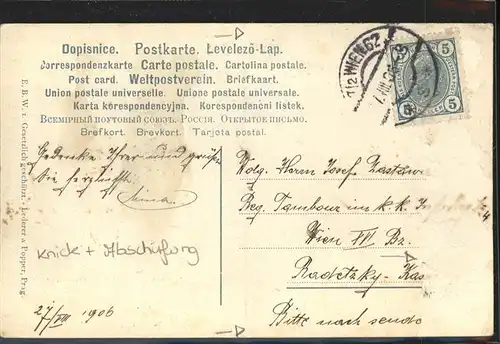 Dopisnice. Postkarte. Levelező-Lap.
Correspondenzkarte Carte postale. Cartolina postale.
Post card. Weltpostverein. Briefkaart.
Union postale universelle. Unione postale universale.
Karta korespondencyjna. Korespondenčni listek.
Всемірный почтовый союзъ. Россія. Открытое письмо.
Brefkort. Brevkort. Tarjeta postal.
E. B. W. 1. Gesetzlich geschützt. Lederer & Popper, Prag
WIEN 62
5 5
5 5
Gedenke Ihrer und grüße
Sie herzlichst
Knick + Abschürfung
27/VIII 1906
Wolg. Herrn Josef
Reg. Tambour im k. k.
Wien VII Bz.
Radetzky-Kas
Bitte nach